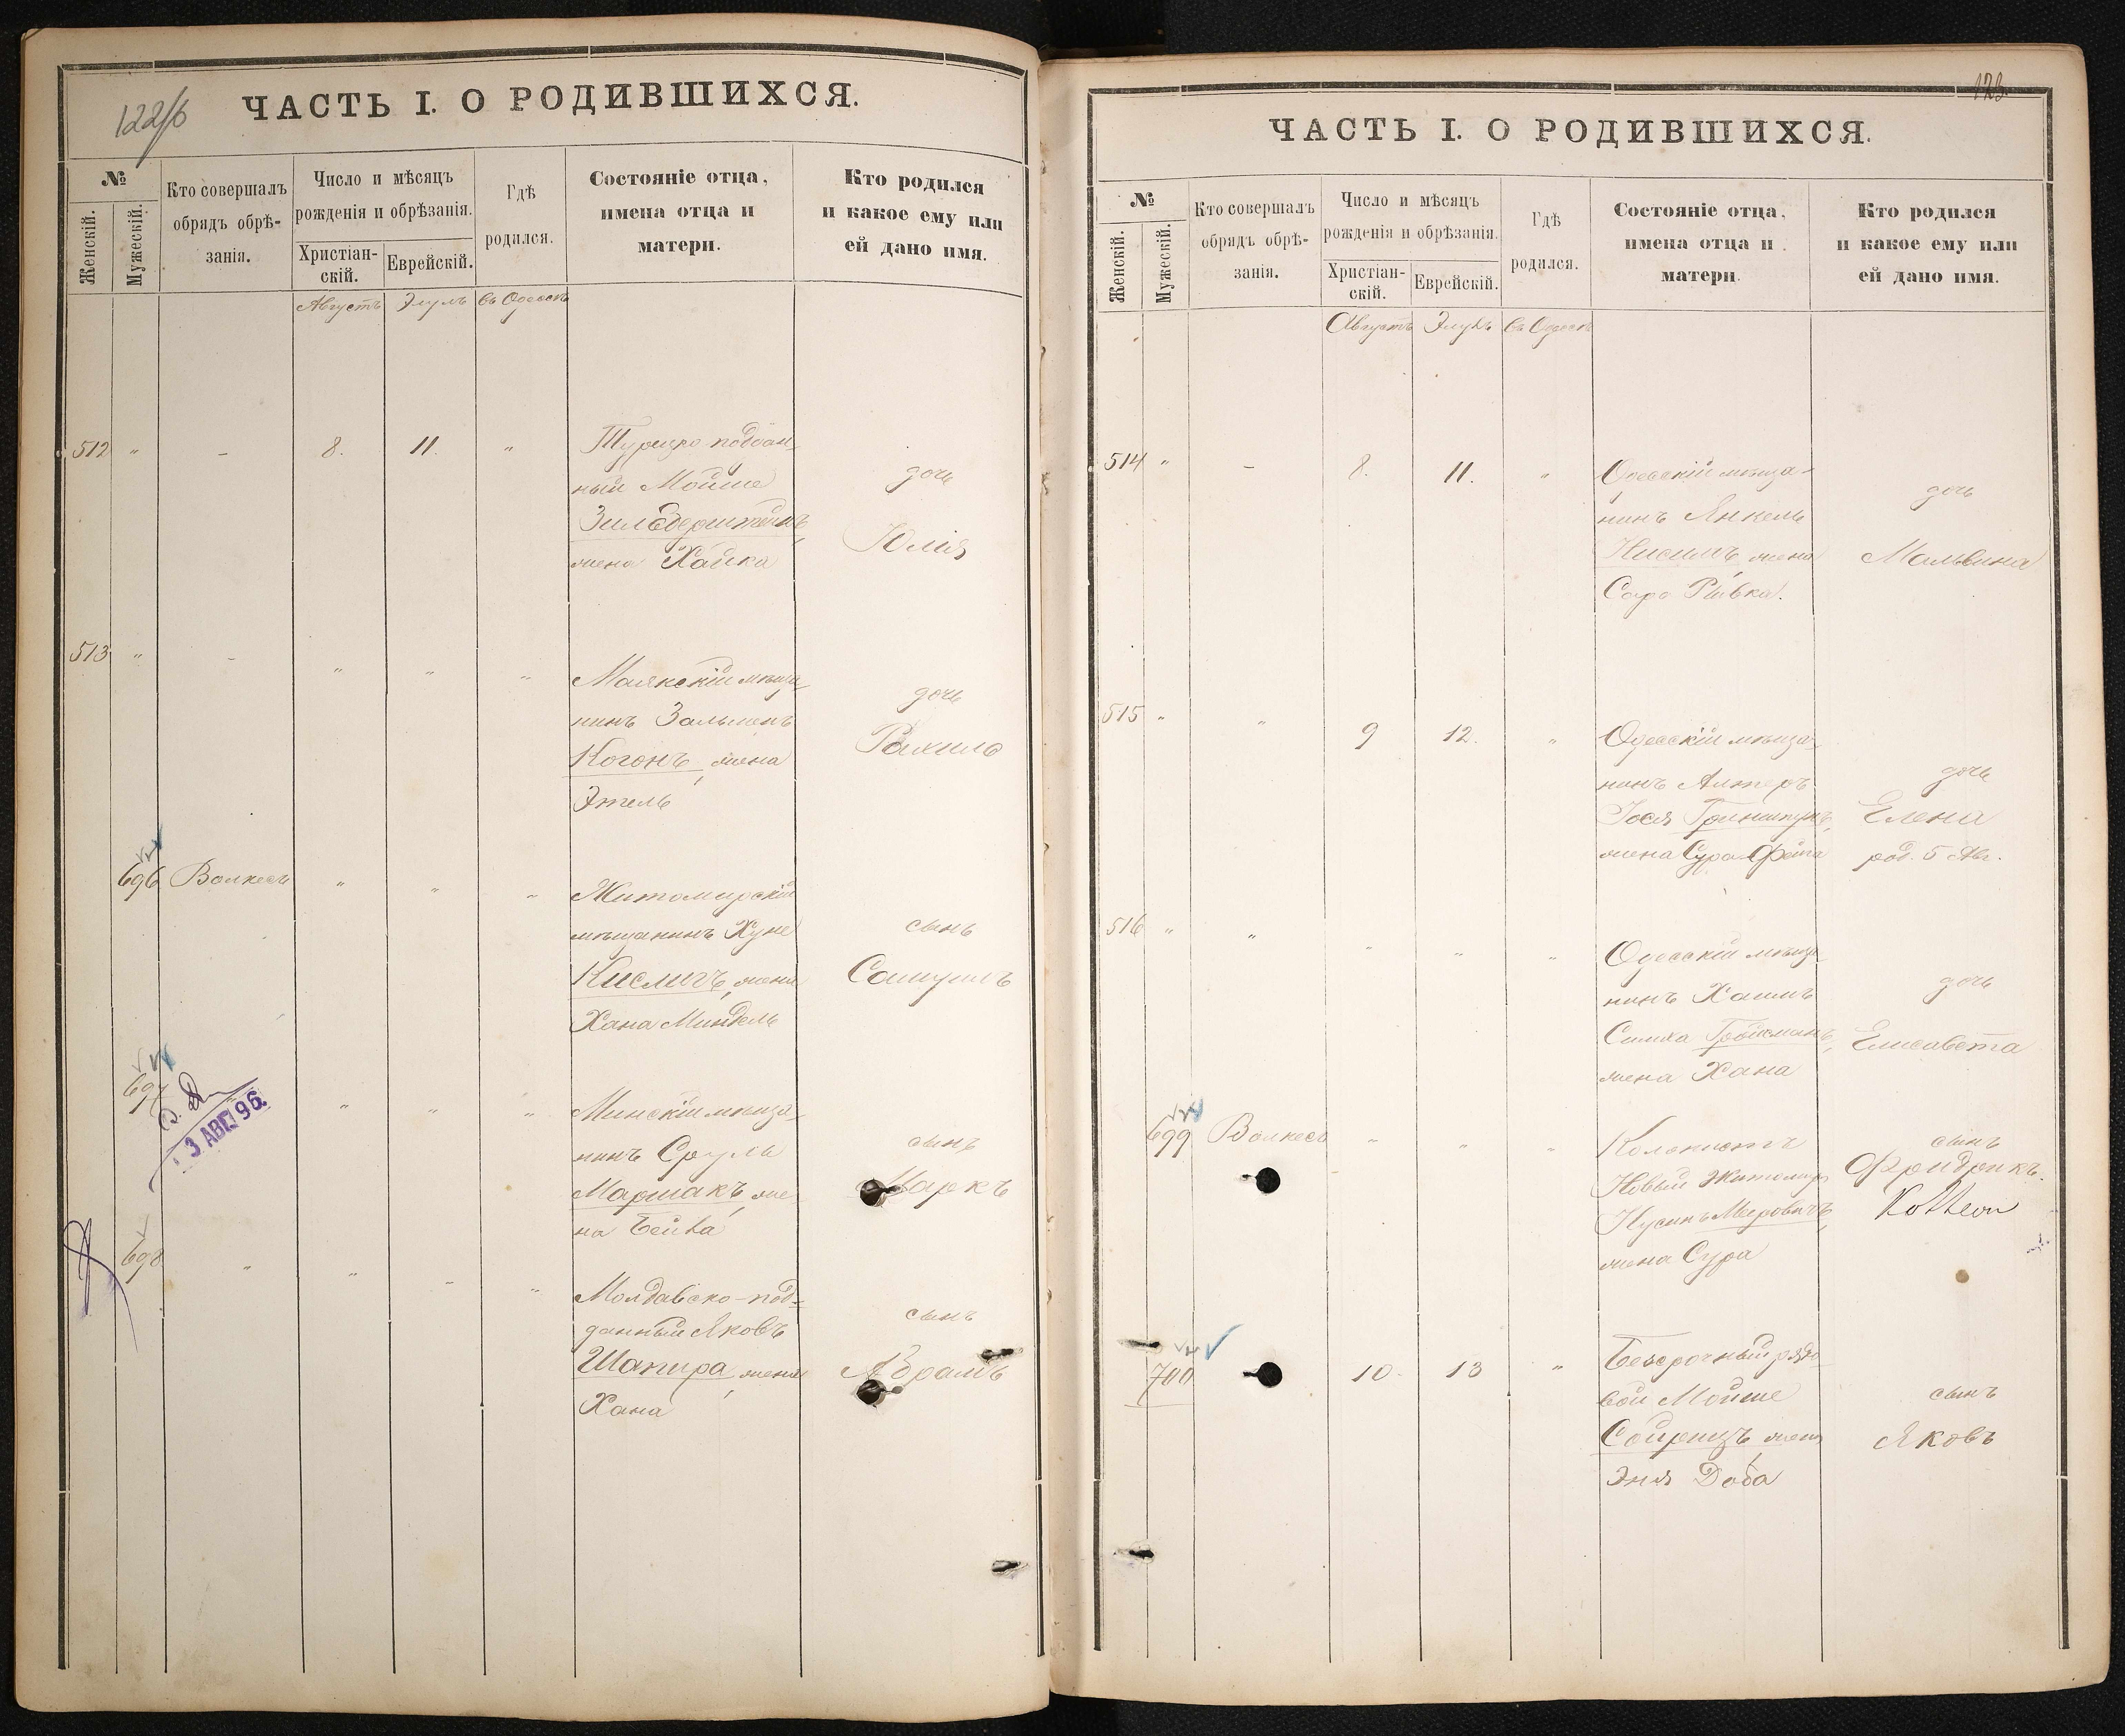 122/б
ЧАСТЬ I. О РОДИВШИХСЯ.
№
Женскій.
Мужескій.
Кто совершалъ
обрядъ обрѣ-
занія.
Число и мѣсяцъ
рожденія и обрѣзанія.
Христіан-
скій.
Еврейскій.
Гдѣ
родился.
Состояніе отца,
имена отца и
матери.
Кто родился
и какое ему или
ей дано имя.
Августъ Элулъ въ Одессѣ
512 " - 8. 11. "
Турецко поддан-
ный Мойше
Зильберштейнъ,
жена Хайка
дочь
Юлія
513 " - " " "
Маякскій мѣща-
нинъ Зальменъ
Когонъ, жена
Этель
дочь
Рахиль
696 Волкесъ " " "
Житомирскій
мѣщанинъ Хуне
Кислигъ, жена
Хана Миндель
сынъ
Самуилъ
697 " " " "
3 АВГ 96.
Минскій мѣща-
нинъ Сруль
Маршакъ, же-
на Бейла
сынъ
Маркъ
698 " " " "
Молдавско-под-
данный Яковъ
Шапира, жена
Хана
сынъ
Абрамъ
123.
ЧАСТЬ I. О РОДИВШИХСЯ.
№
Женскій.
Мужескій.
Кто совершалъ
обрядъ обрѣ-
занія.
Число и мѣсяцъ
рожденія и обрѣзанія.
Христіан-
скій.
Еврейскій.
Гдѣ
родился.
Состояніе отца,
имена отца и
матери.
Кто родился
и какое ему или
ей дано имя.
Августъ Элулъ въ Одессѣ
514 " - 8. 11. "
Одесскій мѣща-
нинъ Янкель
Нисимъ, жена
Сара Ривка.
дочь
Мальвина
515 " " 9 12. "
Одесскій мѣща-
нинъ Алтеръ
Іося Гринштунъ,
жена Сура Фейга
дочь
Елена
род. 5 Авг.
516 " " " " "
Одесскій мѣща-
нинъ Хаимъ
Симха Гройсманъ,
жена Хана
дочь
Елисавета
699 Волкесъ " " "
Колонистъ
Новый Житомиръ
Нусинъ Мееровичъ,
жена Сура
сынъ
Фридрихъ.
700 10. 13 "
Безсрочный рядо-
вой Мойше
жена
Эня Доба
сынъ
Яковъ